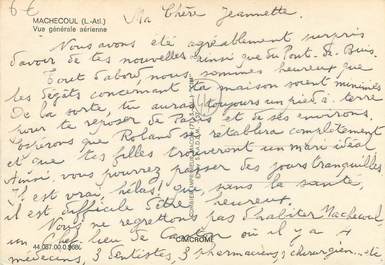 6 €
MACHECOUL (L.-Atl.)
Vue générale aérienne
Ma Chère Jeannette.
Nous avons été agréablement surpris
d'avoir de tes nouvelles ainsi que du Pont-de-Buis.
Tout d'abord, nous sommes heureux que
les dégâts concernant ta maison soient minimes
De la sorte, tu auras toujours un pied à terre
pour te reposer de Paris et de ses environs.
Espérons que Roland se rétablira complètement
et que tes filles trouveront un mari idéal
Ainsi, vous pourrez passer des jours tranquilles
Il est vrai, hélas! que, sans la santé,
il est difficile d'être heureux.
Nous ne regrettons pas d'habiter Machecoul,
un Chef-lieu de Canton où il y a 4
médecins, 3 dentistes, 3 pharmaciens, 1 chirurgien...
CIM